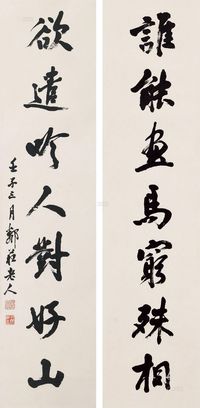 誰能畫馬窮殊相
欲遣吟人對好山
壬子三月鄭莊老人